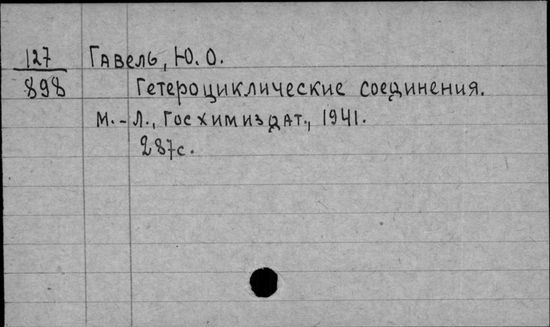 127 Гавель, Ю. О.
898 Гетероциклические соединения.
М.-Л., Госхимиздат., 1941.
287с.